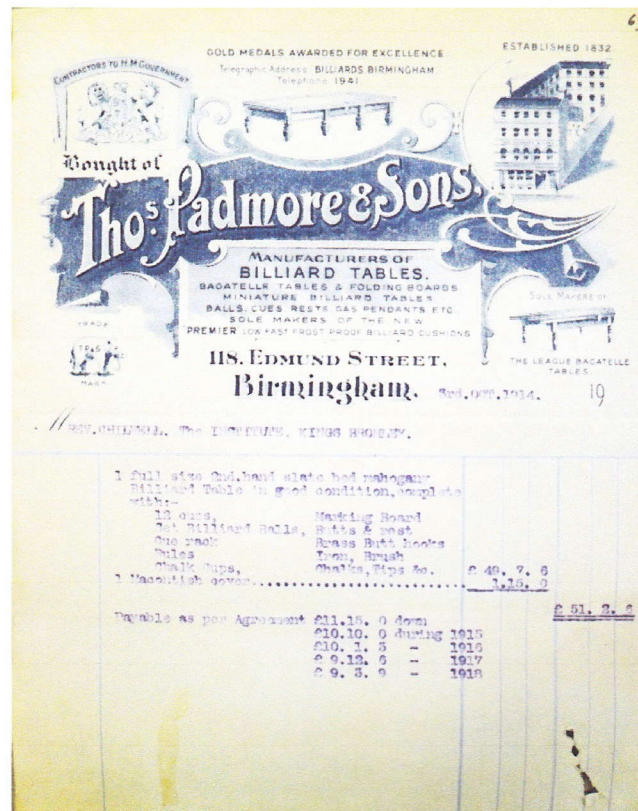 GOLD MEDALS AWARDED FOR EXCELLENCE
Telegraphic Address: BILLIARDS BIRMINGHAM
Telephone 1941
ESTABLISHED 1832
CONTRACTORS TO H.M GOVERNMENT
Bought of
Thos. Padmore & Sons.
MANUFACTURERS OF
BILLIARD TABLES.
BAGATELLE TABLES & FOLDING BOARDS
MINIATURE BILLIARD TABLES
BALLS, CUES RESTS, GAS PENDANTS ETC.
SOLE MAKERS OF THE NEW
PREMIER LOW FAST FROST PROOF BILLIARD CUSHIONS
TRADE
MARK
SOLE MAKERS OF
THE LEAGUE BAGATELLE
TABLES
118, EDMUND STREET,
Birmingham, 3rd.OCT.1914. 19
M REV.CHILWELL. The INSTITUTE, KINGS BROMLEY.
1 full size 2nd.hand slate bed mahogany
Billiard Table in good condition,complete
with:-
12 cues, Marking Board
Set Billiard Balls, Butts & rest
Cue rack Brass Butt hooks
Rules Iron, Brush
Chalk Cups, Chalks,Tips &c. £ 49. 7. 6
1 Macontish cover.................... 1.15. 0
£ 51. 2. 6
Payable as per Agreement £11.15. 0 down
£10.10. 0 during 1915
£10. 1. 3 - 1916
£ 9.12. 6 - 1917
£ 9. 3. 9 - 1918